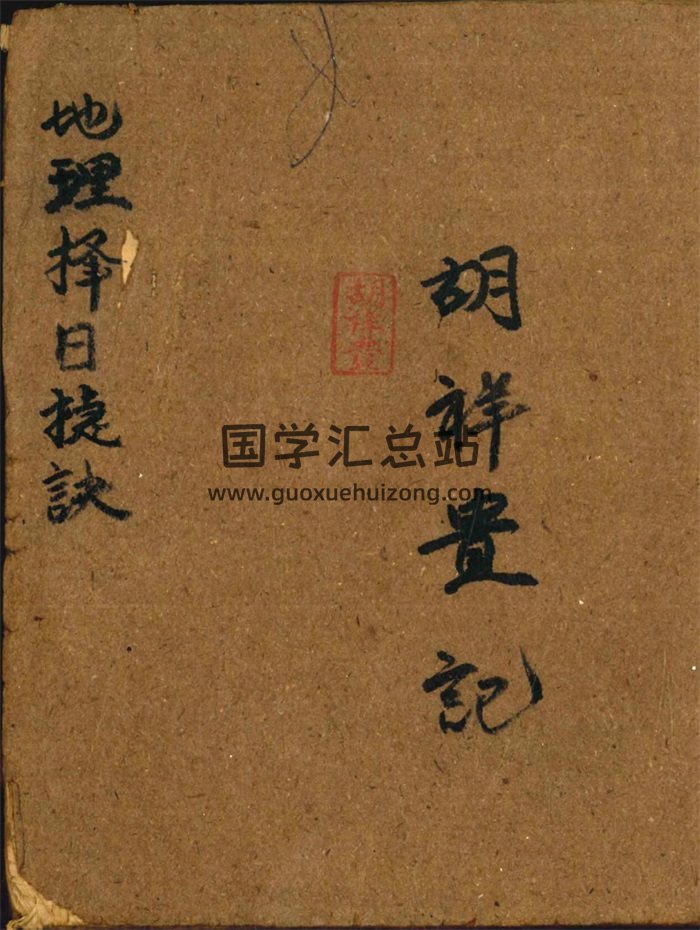 胡祥豊記
胡祥豐
地理择日捷訣
国学汇总站
www.guoxuehuizong.com